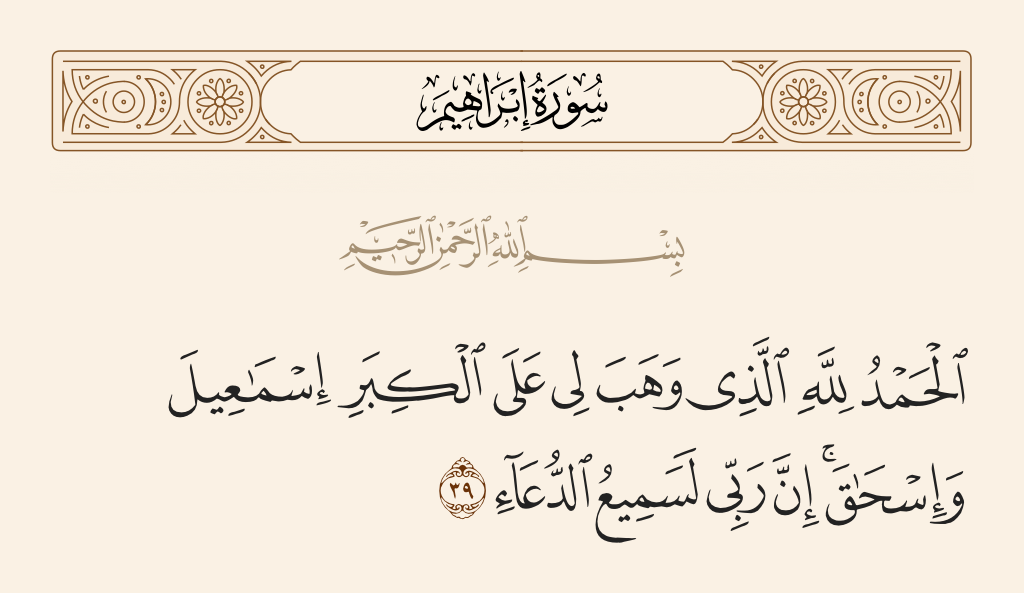 سُورَةُ إِبْرَاهِيمَ
بِسْمِ ٱللَّهِ ٱلرَّحْمَٰنِ ٱلرَّحِيمِ
ٱلْحَمْدُ لِلَّهِ ٱلَّذِى وَهَبَ لِى عَلَى ٱلْكِبَرِ إِسْمَـٰعِيلَ
وَإِسْحَـٰقَ ۚ إِنَّ رَبِّى لَسَمِيعُ ٱلدُّعَآءِ ٣٩